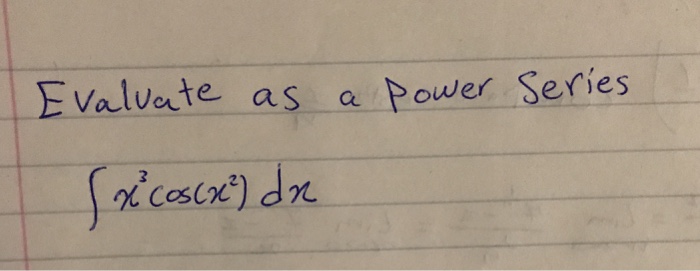 Evaluate as a Power Series
∫x³cos(x²) dx